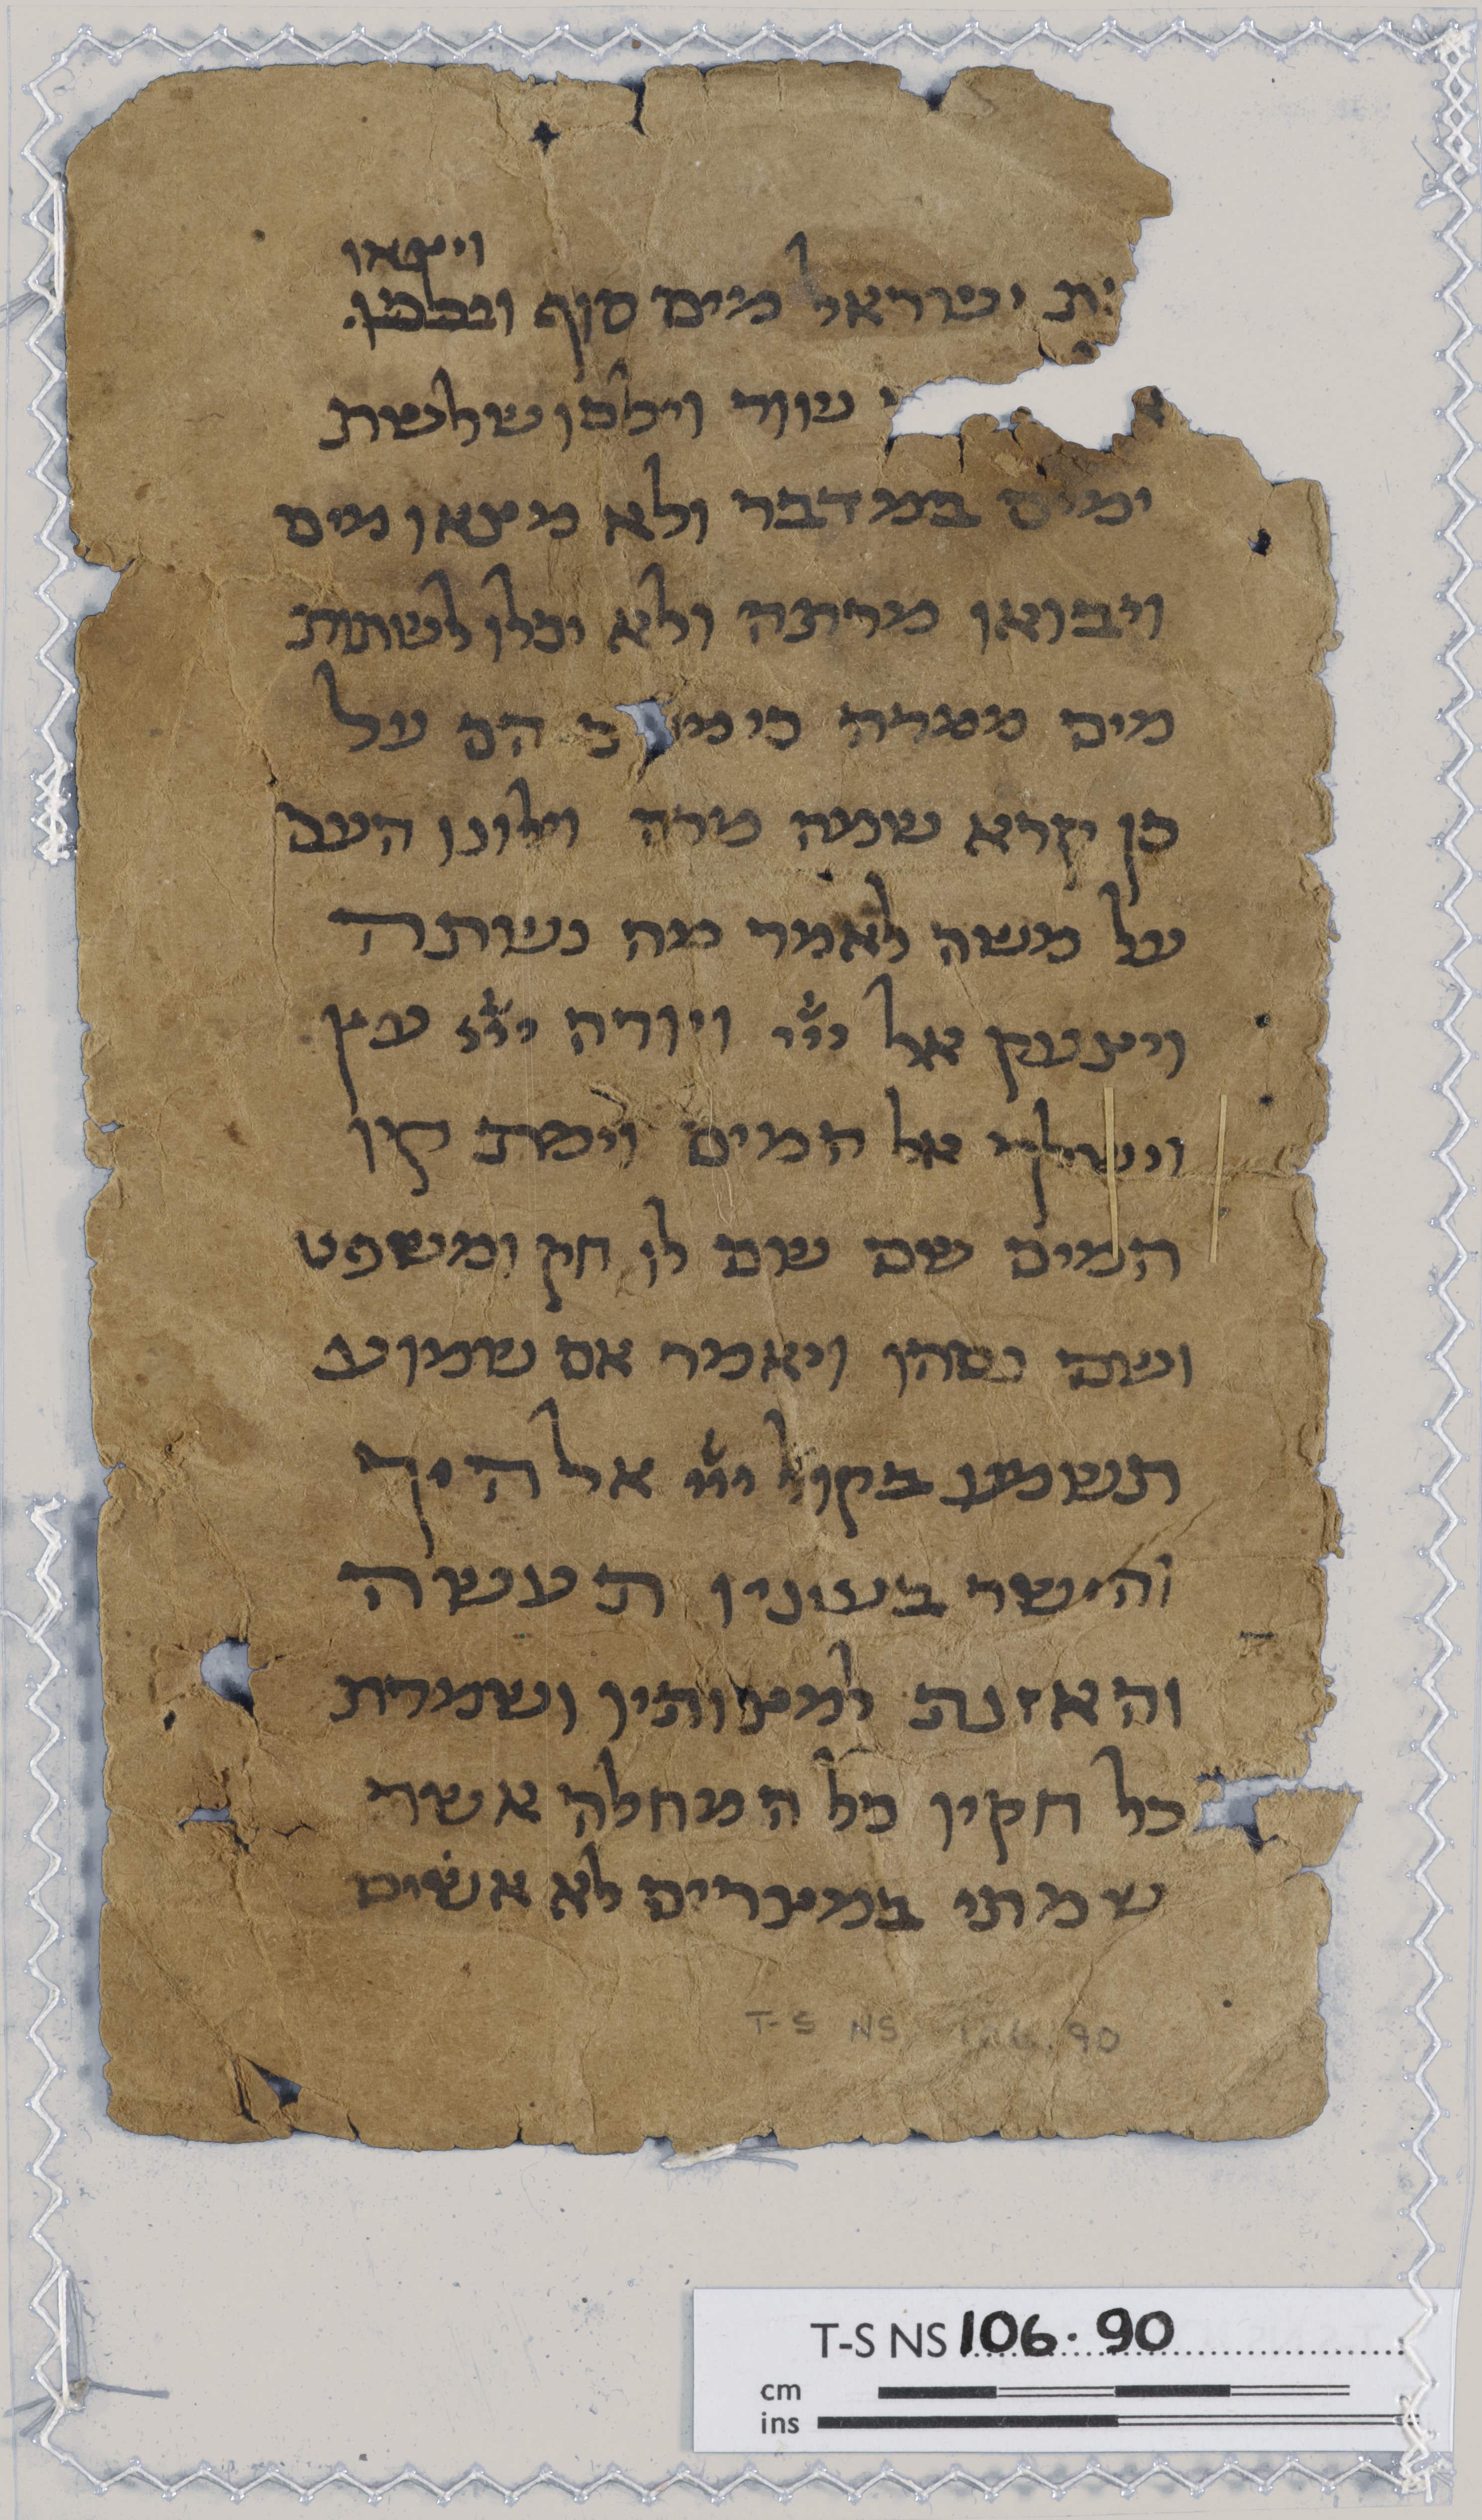 ויצאו
ית ישראל מים סוף וילכו
שור וילכו שלשת
ימים במדבר ולא מצאו מים
ויבואו מרתה ולא יכלו לשתות
מים ממרה כי מרים הם על
כן קרא שמה מרה וילונו העם
על משה לאמר מה נשתה
ויצעק אל ייי ויורה ייי עץ
וישלך אל המים וימתקו
המים שם שם לו חק ומשפט
ושם נסהו ויאמר אם שמוע
תשמע בקול ייי אלהיך
והישר בעיניו תעשה
והאזנת למצותיו ושמרת
כל חקיו כל המחלה אשר
שמתי במצרים לא אשים
T-S NS 106.90
T-S NS 106.90
cm
ins